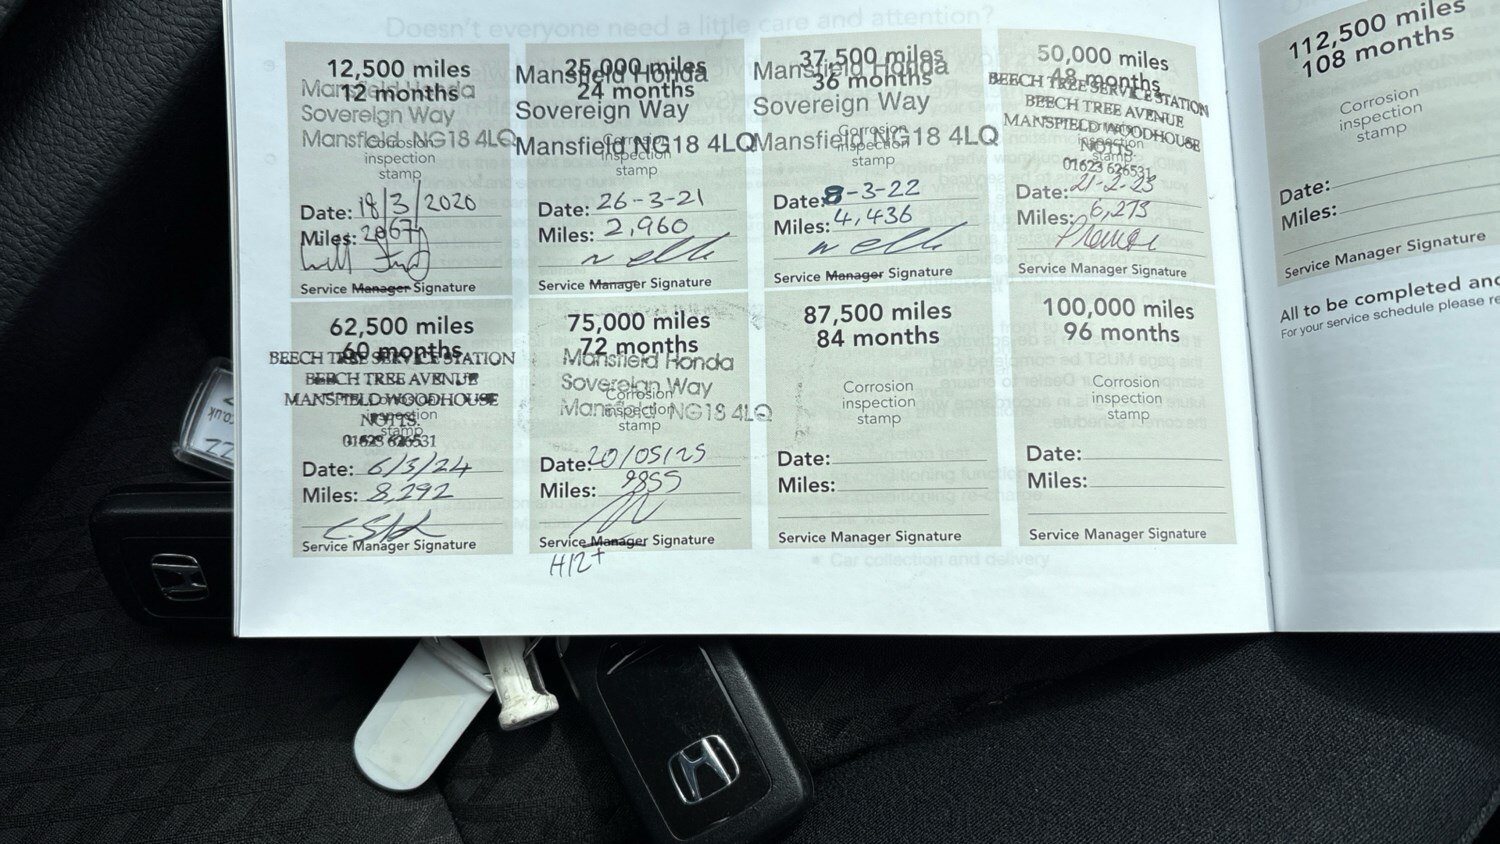 Doesn't everyone need a little care and attention?
12,500 miles
12 months
Mansfield Honda
Sovereign Way
Mansfield NG18 4LQ
Corrosion
inspection
stamp
Date: 18/3/2020
Miles: 2067
Service Manager Signature
25,000 miles
24 months
Mansfield Honda
Sovereign Way
Mansfield NG18 4LQ
Corrosion
inspection
stamp
Date: 26-3-21
Miles: 2,960
Service Manager Signature
37,500 miles
36 months
Mansfield Honda
Sovereign Way
Mansfield NG18 4LQ
Corrosion
inspection
stamp
Date: 8-3-22
Miles: 4,436
Service Manager Signature
50,000 miles
48 months
BEECH TREE SERVICE STATION
BEECH TREE AVENUE
MANSFIELD WOODHOUSE
NOTTS
01623 626531
inspection
stamp
Date: 21-2-23
Miles: 6,273
Service Manager Signature
62,500 miles
60 months
BEECH TREE SERVICE STATION
BEECH TREE AVENUE
MANSFIELD WOODHOUSE
NOTTS.
01623 626531
Corrosion
inspection
stamp
Date: 6/3/24
Miles: 8,292
Service Manager Signature
75,000 miles
72 months
Mansfield Honda
Sovereign Way
Mansfield NG18 4LQ
Corrosion
inspection
stamp
Date: 20/05/25
Miles: 9855
Service Manager Signature
H12+
87,500 miles
84 months
Corrosion
inspection
stamp
Date:
Miles:
Service Manager Signature
100,000 miles
96 months
Corrosion
inspection
stamp
Date:
Miles:
Service Manager Signature
• Car collection and delivery
112,500 miles
108 months
Corrosion
inspection
stamp
Date:
Miles:
Service Manager Signature
All to be completed and
For your service schedule please re